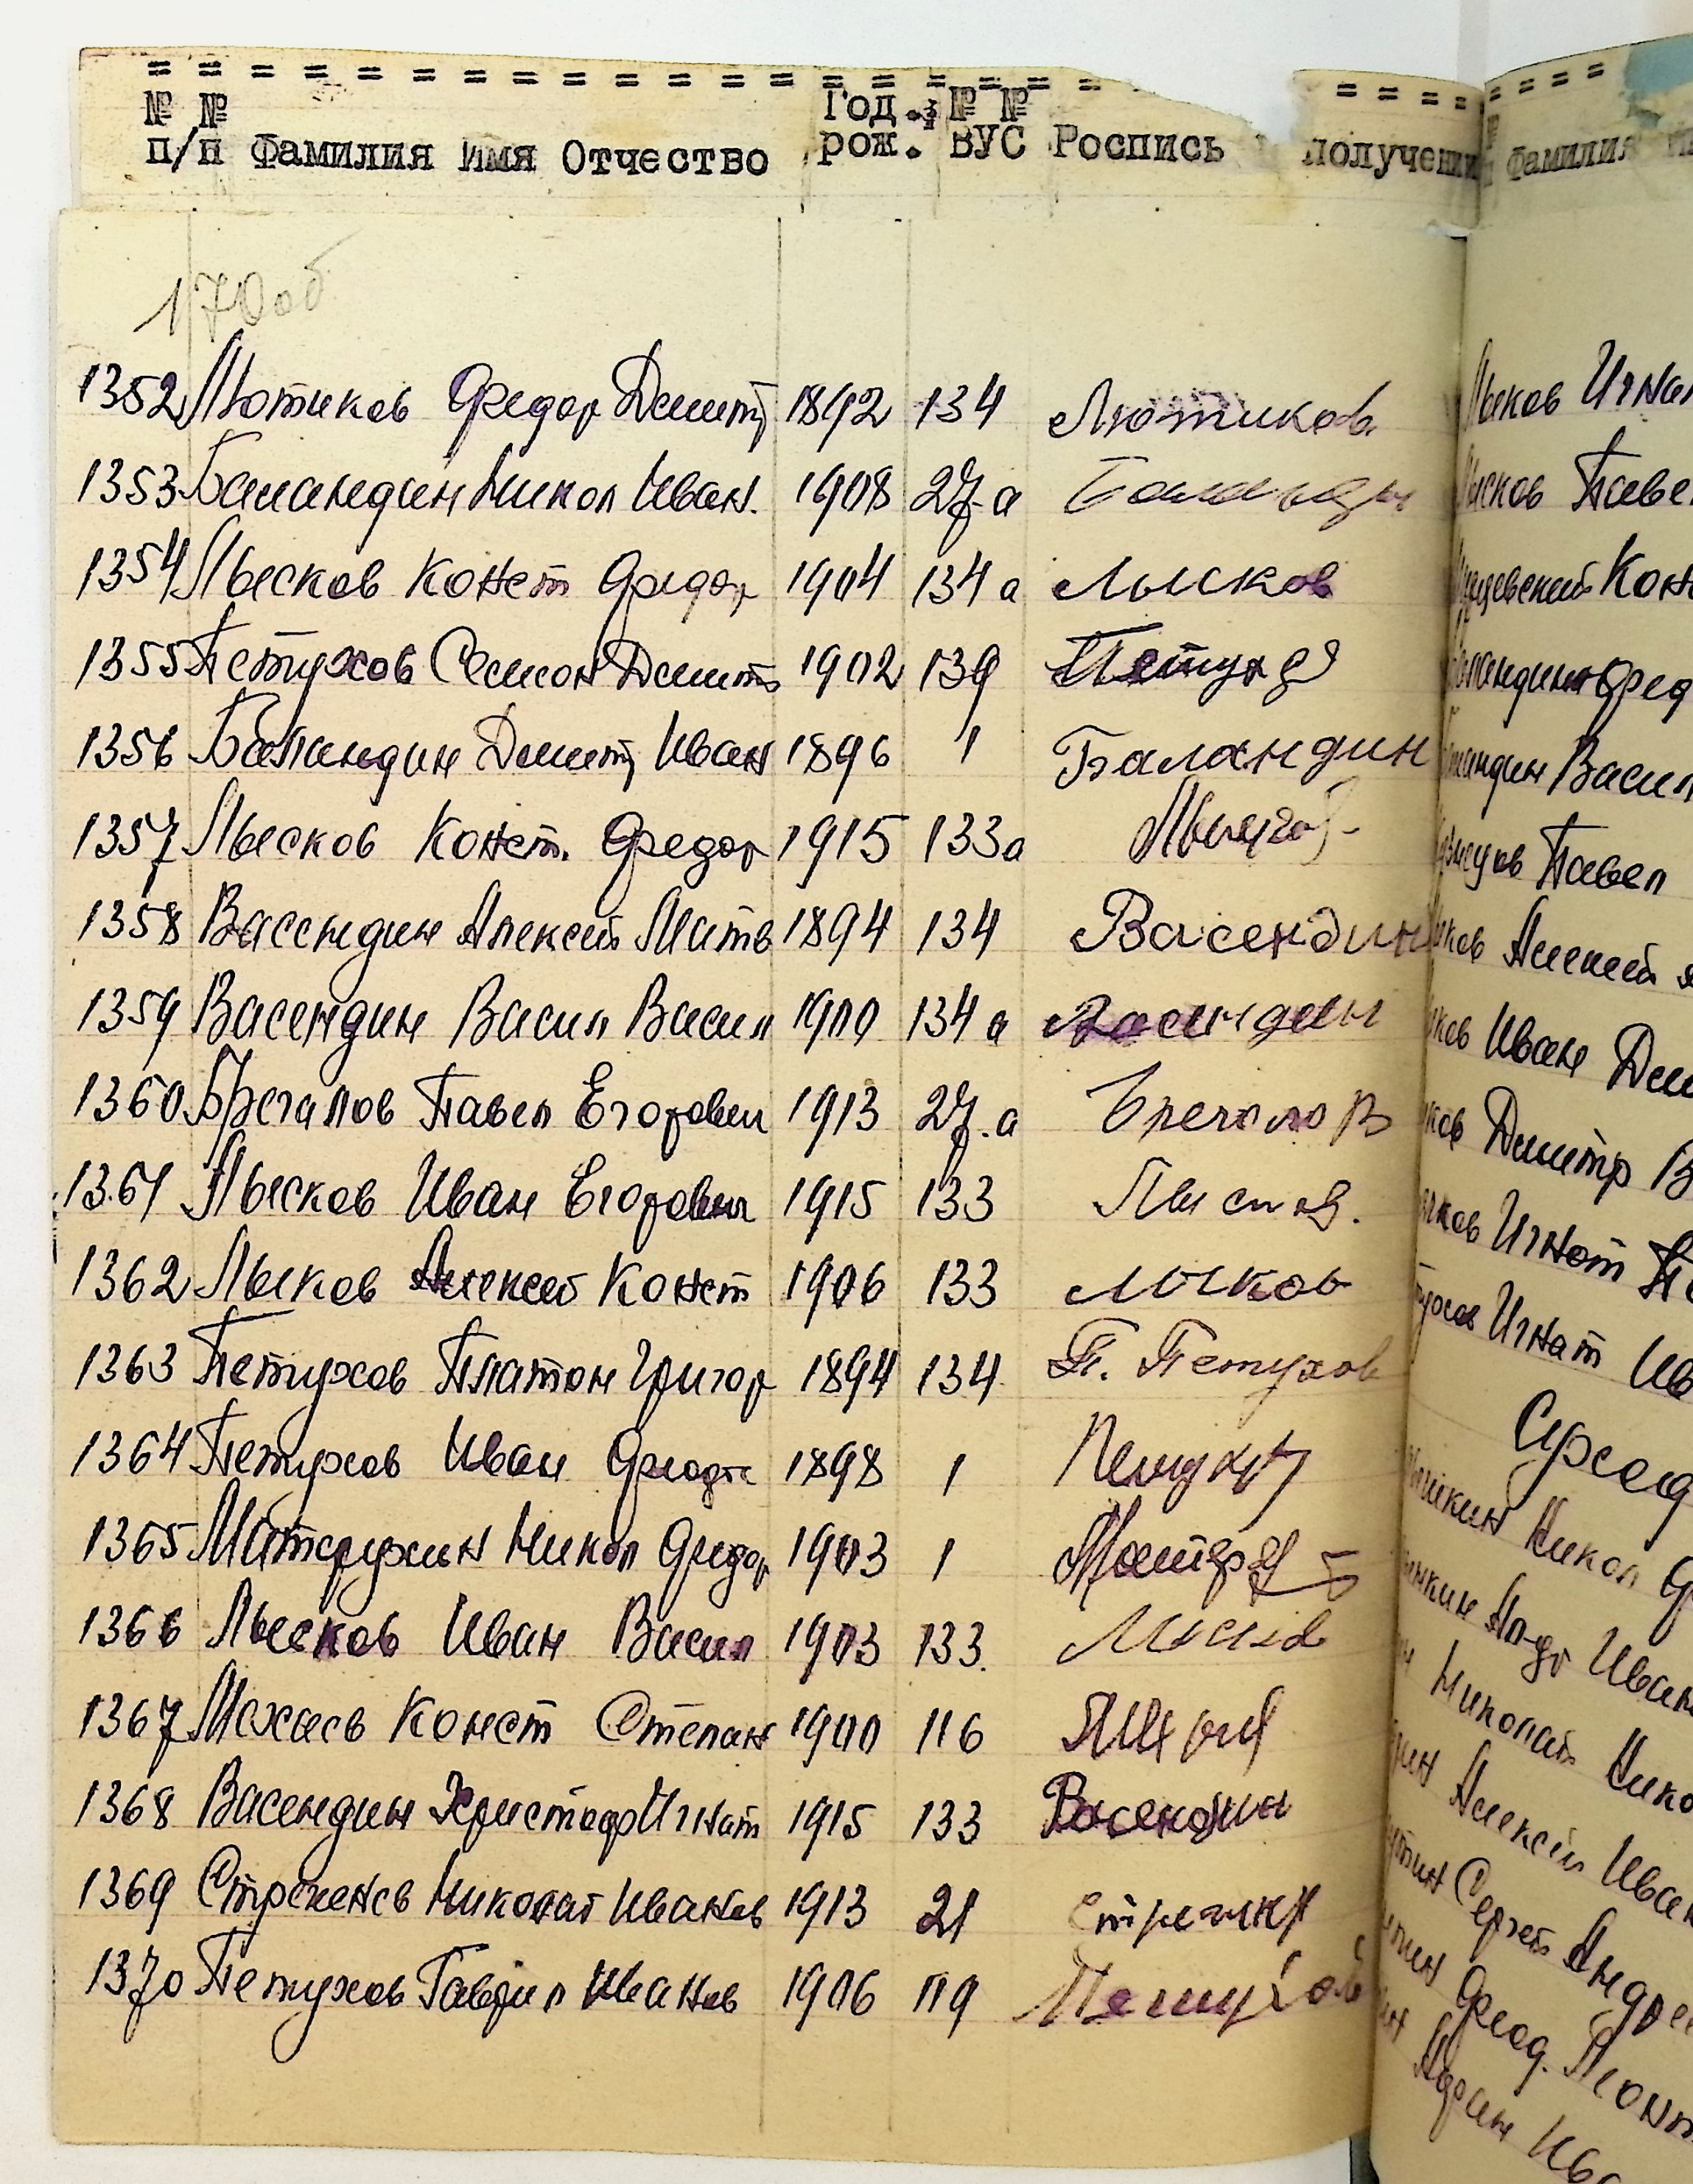 = = = = = = = = = = = = = = = = = = = = = =
№ № Год. № №
п/п Фамилия Имя Отчество рож. ВУС Роспись получении Фамилия
170об
1352 Лютиков Федор Дмитр 1892 134 Лютиков
1353 Баландин Никол Иван. 1908 27-а
1354 Лысков Конст Федор 1904 134а Лысков
1355 Петухов Семон Дмит 1902 139
1356 Баландин Дмитр Иван 1896 1 Баландин
1357 Лысков Конст. Федор 1915 133а
1358 Васендин Алексей Матв 1894 134 Васендин
1359 Васендин Васил Васил 1900 134а Васендин
1360 Брегалов Павел Егорович 1913 27.а
1361 Лысков Иван Егорович 1915 133
1362 Лыков Алексей Конст 1906 133 Лыков
1363 Петухов Платон Григор 1894 134 П. Петухов
1364 Петухов Иван 1898 1
1365 Матерухин Никол Федор 1903 1
1366 Лысков Иван Васил 1903 133.
1367 Мохаев Конст Степан 1900 116
1368 Васендин Христоф Игнат 1915 133 Васендин
1369 Стрекенев Николай Иванов 1913 21
1370 Петухов Гаврил Иванов 1906 119 Петухов
Лыков Игнат
Лысков Павел
Кон
Баландин Фед
Баландин Васил
Павел
Алексей
Иван Дми
Дмитр В
Игнат
Игнат Ив
Никол
Иван
Николай Нико
Алексей Иван
Сергей Андрее